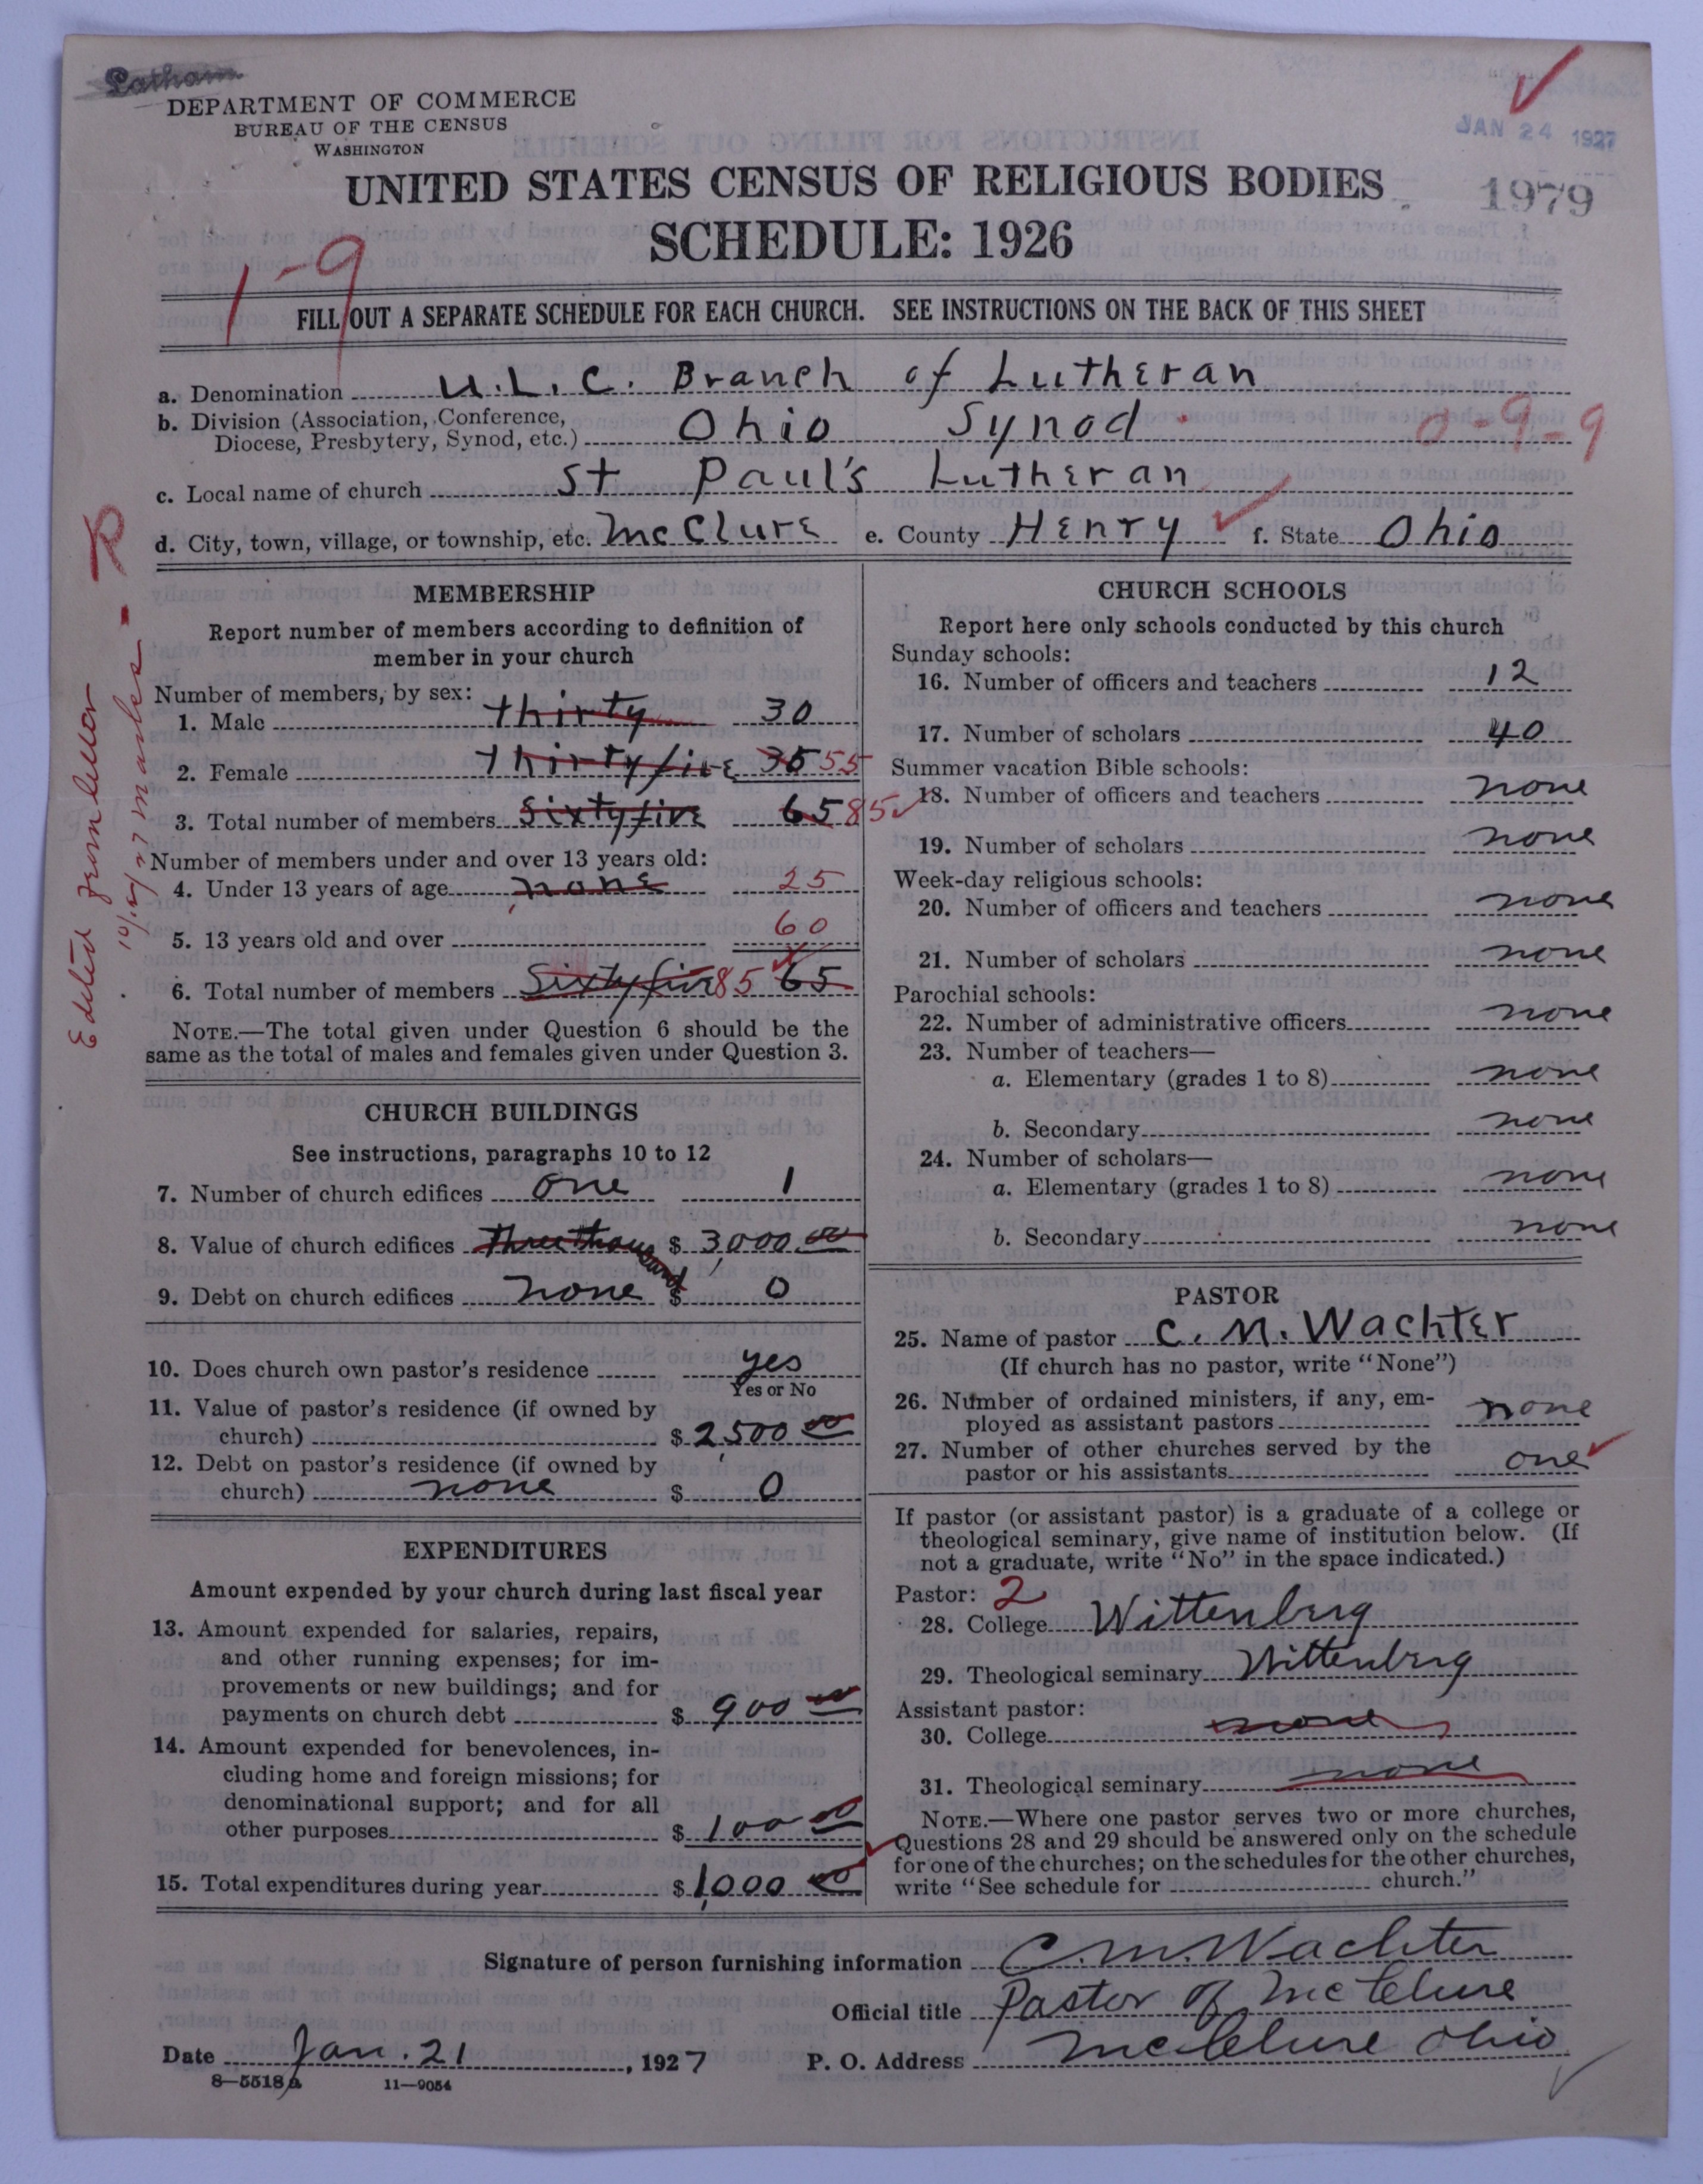 Latham
DEPARTMENT OF COMMERCE
BUREAU OF THE CENSUS
WASHINGTON
JAN 24 1927
UNITED STATES CENSUS OF RELIGIOUS BODIES
1979
SCHEDULE: 1926
1-9
FILL OUT A SEPARATE SCHEDULE FOR EACH CHURCH. SEE INSTRUCTIONS ON THE BACK OF THIS SHEET
a. Denomination U.L.C. Branch of Lutheran
b. Division (Association, Conference,
Diocese, Presbytery, Synod, etc.) Ohio Synod. 0-9-9
c. Local name of church St Paul's Lutheran
d. City, town, village, or township, etc. McClure e. County Henry f. State Ohio
Edited from letter
10/12/27 marler - R
MEMBERSHIP
Report number of members according to definition of
member in your church
Number of members, by sex:
1. Male thirty 30
2. Female Thirty five 35 55
3. Total number of members Sixty five 65 85
Number of members under and over 13 years old:
4. Under 13 years of age none 25
5. 13 years old and over 60
6. Total number of members Sixty five 85 65
NOTE.—The total given under Question 6 should be the
same as the total of males and females given under Question 3.
CHURCH BUILDINGS
See instructions, paragraphs 10 to 12
7. Number of church edifices one 1
8. Value of church edifices three thousand $ 3,000 00
9. Debt on church edifices none $ 0
10. Does church own pastor's residence yes
Yes or No
11. Value of pastor's residence (if owned by
church) $ 2,500 00
12. Debt on pastor's residence (if owned by
church) none $ 0
EXPENDITURES
Amount expended by your church during last fiscal year
13. Amount expended for salaries, repairs,
and other running expenses; for im-
provements or new buildings; and for
payments on church debt $ 900 00
14. Amount expended for benevolences, in-
cluding home and foreign missions; for
denominational support; and for all
other purposes $ 100 00
15. Total expenditures during year $ 1,000 00
CHURCH SCHOOLS
Report here only schools conducted by this church
Sunday schools:
16. Number of officers and teachers 12
17. Number of scholars 40
Summer vacation Bible schools:
18. Number of officers and teachers none
19. Number of scholars none
Week-day religious schools:
20. Number of officers and teachers none
21. Number of scholars none
Parochial schools:
22. Number of administrative officers none
23. Number of teachers—
a. Elementary (grades 1 to 8) none
b. Secondary none
24. Number of scholars—
a. Elementary (grades 1 to 8) none
b. Secondary none
PASTOR
25. Name of pastor C. M. Wachter
(If church has no pastor, write "None")
26. Number of ordained ministers, if any, em-
ployed as assistant pastors none
27. Number of other churches served by the
pastor or his assistants one
If pastor (or assistant pastor) is a graduate of a college or
theological seminary, give name of institution below. (If
not a graduate, write "No" in the space indicated.)
Pastor: 2
28. College Wittenberg
29. Theological seminary Wittenberg
Assistant pastor:
30. College none
31. Theological seminary none
NOTE.—Where one pastor serves two or more churches,
Questions 28 and 29 should be answered only on the schedule
for one of the churches; on the schedules for the other churches,
write "See schedule for church."
Signature of person furnishing information C. M. Wachter
Official title Pastor of McClure
Date Jan. 21, 1927 P. O. Address McClure Ohio
8—5518a 11—9054